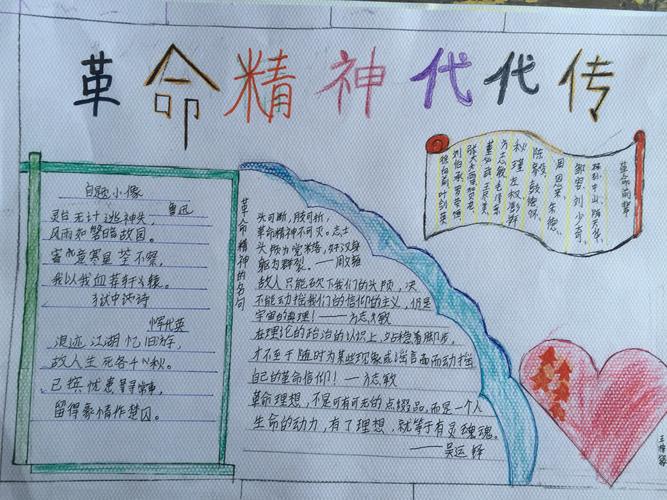 革命精神代代传
自题小像
鲁迅
灵台无计逃神矢,
风雨如磐暗故园。
寄意寒星荃不察,
我以我血荐轩辕。
狱中诗
恽代英
浪迹江湖忆旧游,
故人生死各千秋。
已摈忧患寻常事,
留得豪情作楚囚。
革命精神的名句
头可断,肢可折,
革命精神不可灭。志士
头颅为党落,好汉身
躯为群裂。——周文雍
敌人只能砍下我们的头颅,决
不能动摇我们的信仰的主义,乃是
宇宙的真理!——方志敏
在理论的政治的认识上,站稳着脚步,
才不至于随时为某些现象或谣言而动摇
自己的革命信仰!——方志敏
革命理想,不是可有可无的点缀品,而是一个人
生命的动力,有了理想,就等于有灵魂。
——吴运铎
革命前辈
孙中山、陈天华、
邹容、刘少奇、
周恩来、朱德、
陈毅、彭德怀、
秋瑾 左权 彭湃
方志敏 毛泽东
董必武 王尽美
张太雷 贺龙
刘伯承 罗荣桓
徐向前 叶剑英